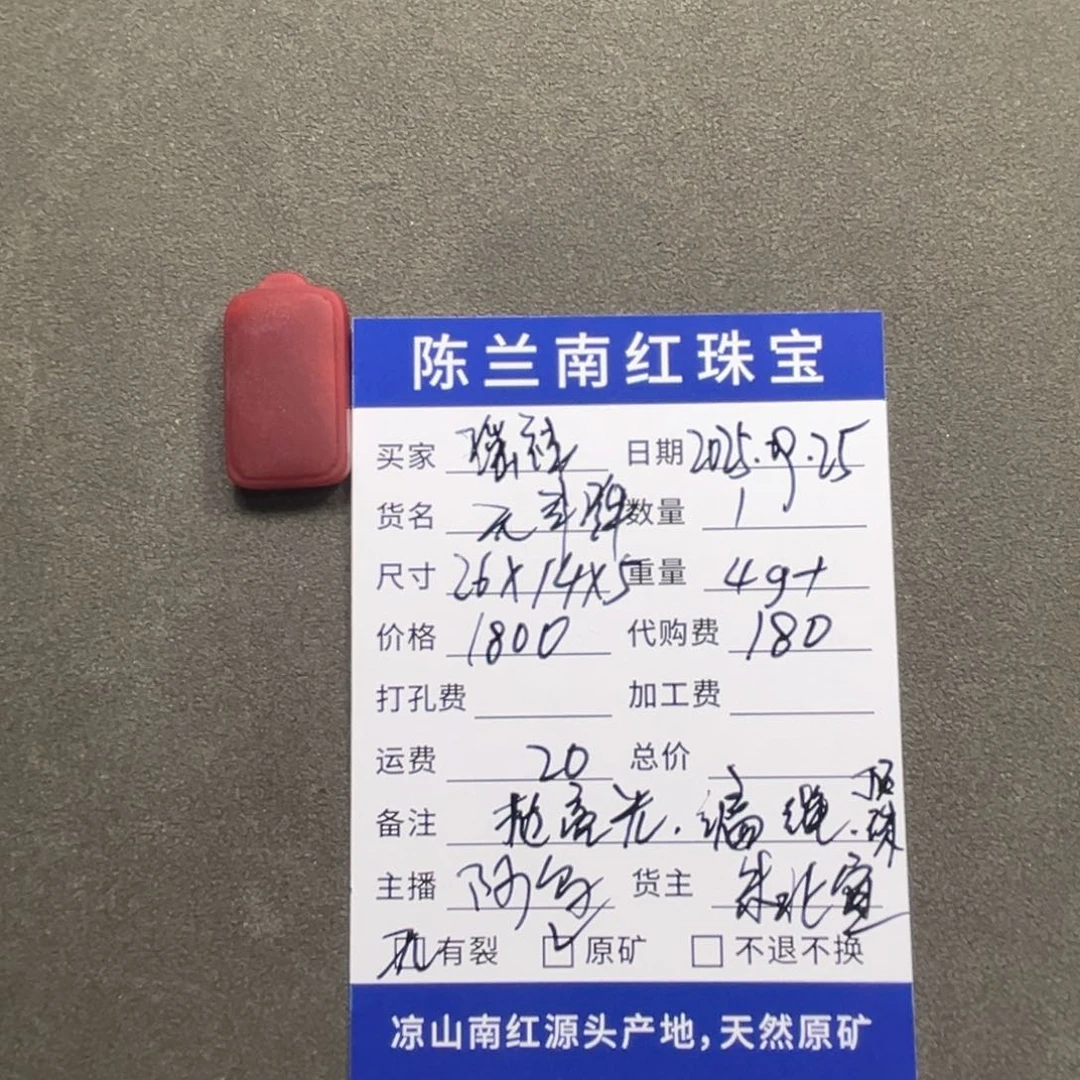 陈兰南红珠宝
买家 日期 2025.9.25
货名 无事牌 数量 1
尺寸 26×14×5 重量 4g+
价格 1800 代购费 180
打孔费 加工费
运费 20 总价
备注 抛高光.编绳.顶珠
主播 货主
无 有裂 原矿 不退不换
凉山南红源头产地,天然原矿